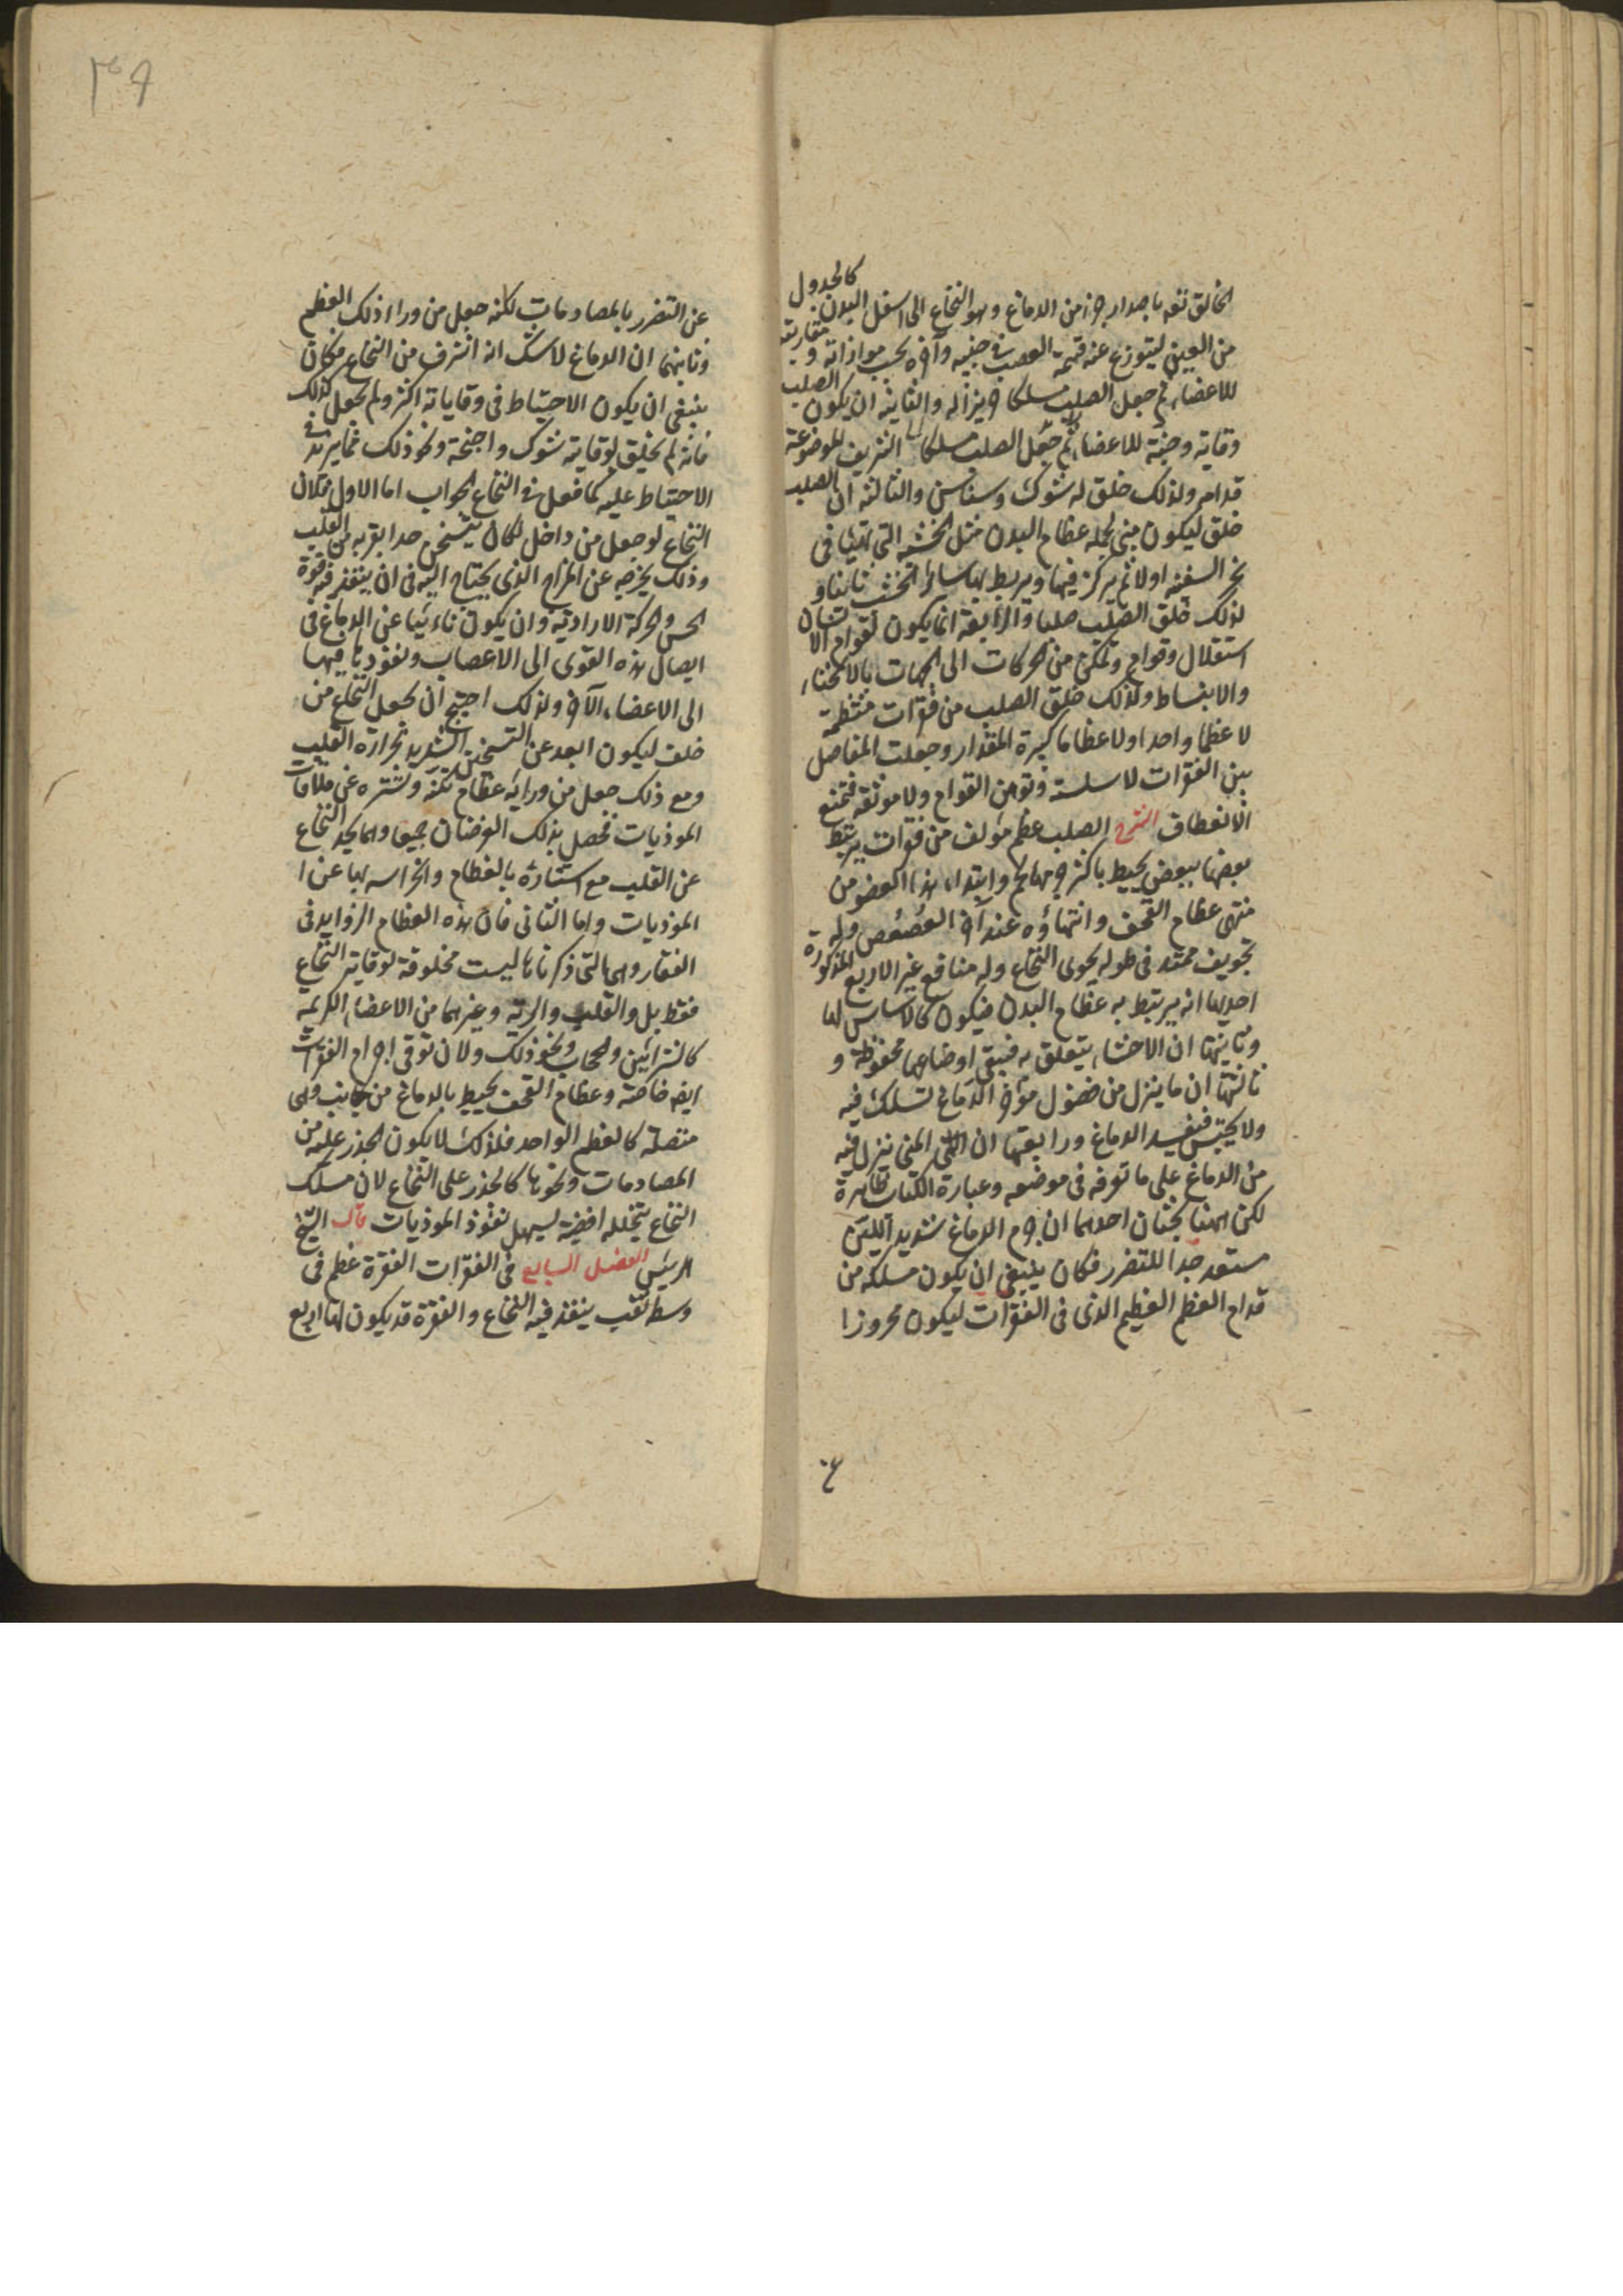 الخالق تعه باصدار جزء من الدماغ وهو النخاع الى اسفل البدن كالجدول
من العين ليتوزع عنه قسمة العصب في جنبيه وآخره بحسب موازاته و مقاربته
للاعضاء ثم جعل الصلب مسلكا حريزا له والثانية ان يكون الصلب
وقاية وجنة للاعضاء الشريفة الموضوعة
قدامه ولذلك خلق له شوك وسناسن والثالثة ان الصلب
خلق ليكون مبنى لجملة عظام البدن مثل الخشبة التى تهيئا فى
نجر السفينه اولا ثم يركز فيها ويربط بها سائر الخشب ثانيا و
لذلك خلق الصلب صلبا والرابعة انما يكون لقوام الانسان
استقلال وقوام وتمكن من الحركات الى الجهات بالانحناء
والانبساط ولذلك خلق الصلب من فقرات منتظمة
لا عظما واحدا ولا عظاما كبيرة المقدار وجعلت المفاصل
بين الفقرات لا سلسة فتوهن القوام ولا موثقة فتمنع
الانعطاف الشرح الصلب عظم مؤلف من فقرات يرتبط
بعضها ببعض يحيط باكثره مهالحم وابتداء هذا العضو من
منتهى عظام القحف وانتهاؤه عند آخر العصعص وله
تجويف ممتد فى طوله يحوى النخاع وله منافع غير الاربع المذكورة
احديها انه يرتبط به عظام البدن فيكون كالاساس لها
وثانيتها ان الاحشاء يتعلق به فتبقى اوضاعها محفوظة و
ثالثتها ان ما ينزل من فضول مؤخر الدماغ تسلك فيه
ولا يحتبس فتفسد الدماغ ورابعتها ان المنى ينزل فيه
من الدماغ على ما تعرفه فى موضعه وعبارة الكتاب ظاهرة
لكن ههنا بحثان احدهما ان جرم الدماغ شديد اللين
مستعد جدا للتضرر فكان ينبغى ان يكون مسلكه من
قدام العظم العظيم الذى فى الفقرات ليكون محروزا
ع
٣٩
عن التضرر بالمصادمات لكنه جعل من وراء ذلك العظم
وثانيهما ان الدماغ لا شك انه اشرف من النخاع فكان
ينبغى ان يكون الاحتياط فى وقاياته اكثر ولم يجعل كذلك
فانه لم يخلق لوقايته شوك واجنحة ونحو ذلك مما يزيد في
الاحتياط عليه كما فعل فى النخاع الجواب اما الاول فلان
النخاع لو جعل من داخل لكان يتسخن جدا بقربه من القلب
وذلك يخرجه عن المزاج الذى يحتاج اليه فى ان ينفذ فيه قوة
الحس والحركة الارادية وان يكون نائبا عن الدماغ فى
ايصال هذه القوى الى الاعصاب ونفوذها فيها
الى الاعضاء الآخر ولذلك احتيج ان يجعل النخاع من
خلف ليكون ابعد عن التسخن الشديد بحرارة القلب
ومع ذلك جعل من ورائه عظام تكنّه وتستره عن ملاقات
الموذيات فحصل بذلك الغرضان جميعا وهما بعد النخاع
عن القلب مع استتاره بالعظام والحراسه بها عن ا
الموذيات واما الثانى فان هذه العظام الزوايد فى
الفقار وهى التى ذكرناها ليست مخلوقة لوقاية النخاع
فقط بل والقلب والرية وغيرهما من الاعضاء الكريمه
كالشرائين والحجاب ونحو ذلك ولان توقى اجرام الفقرات
ايضه خاصة وعظام القحف يحيط بالدماغ من جانب وهى
متصلة كالعظم الواحد فلذلك لا يكون الحذر عليه من
المصادمات ونحوها كالحذر على النخاع لان مسلك
النخاع يتخلله افضية ليسهل نفوذ الموذيات قال الشيخ
الرئيس الفصل السابع فى الفقرات الفقرة عظم فى
وسطه ثقب ينفذ فيه النخاع والفقرة قد يكون لها اربع